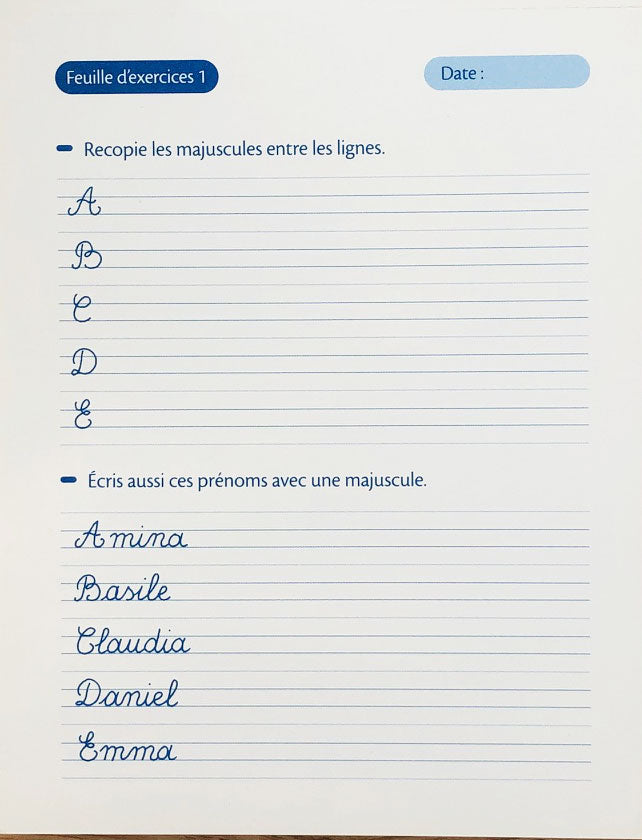 Feuille d'exercices 1
Date :
Recopie les majuscules entre les lignes.
A
B
C
D
E
Écris aussi ces prénoms avec une majuscule.
Amina
Basile
Claudia
Daniel
Emma